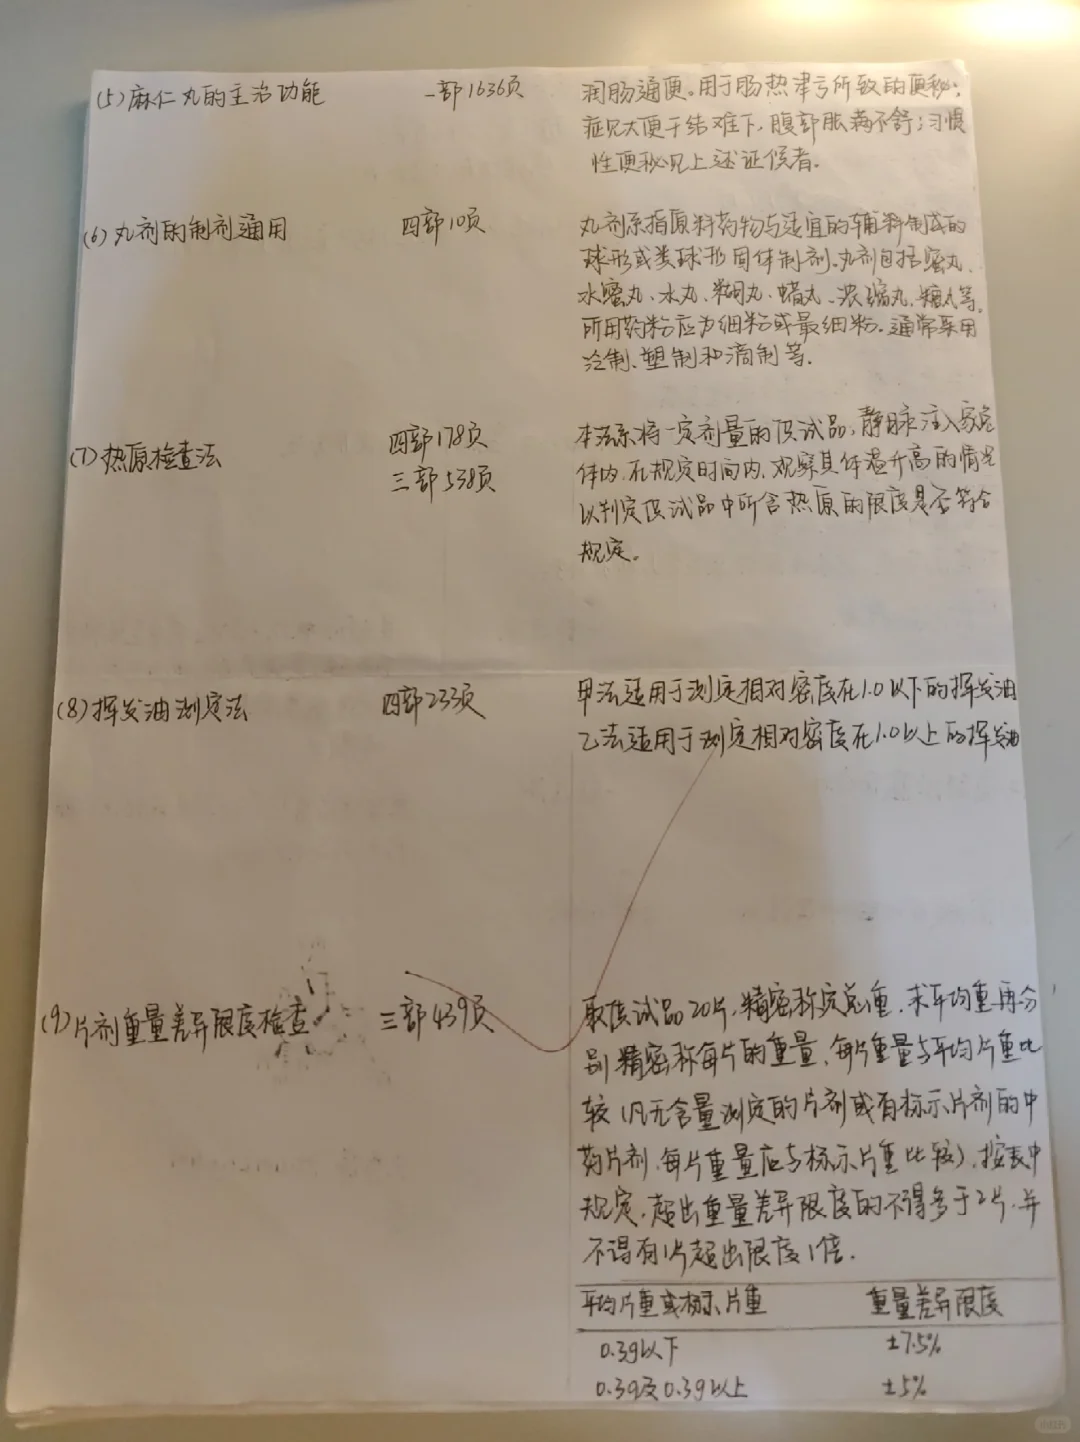 (5)麻仁丸的主治功能 一部1636页 润肠通便。用于肠热津亏所致的便秘;
症见大便干结难下,腹部胀满不舒;习惯
性便秘见上述证候者。
(6)丸剂的制剂通用 四部10页 丸剂系指原料药物与适宜的辅料制成的
球形或类球形固体制剂。丸剂包括蜜丸、
水蜜丸、水丸、糊丸、蜡丸、浓缩丸、糖丸等。
所用药粉应为细粉或最细粉。通常采用
泛制、塑制和滴制等.
(7)热原检查法 四部178页 本法系将一定剂量的供试品,静脉注入家兔
三部538页 体内,在规定时间内,观察其体温升高的情况
以判定供试品中所含热原的限度是否符合
规定。
(8)挥发油测定法 四部233页 甲法适用于测定相对密度在1.0以下的挥发油
乙法适用于测定相对密度在1.0以上的挥发油
(9)片剂重量差异限度检查 三部439页 取供试品20片,精密称定总重,求平均重再分
别精密称每片的重量,每片重量与平均片重比
较(凡无含量测定的片剂或有标示片剂的中
药片剂,每片重量应与标示片重比较),按表中
规定,超出重量差异限度的不得多于2片,并
不得有1片超出限度1倍.
平均片重或标示片重 重量差异限度
0.3g以下 ±7.5%
0.3g及0.3g以上 ±5%
小红书